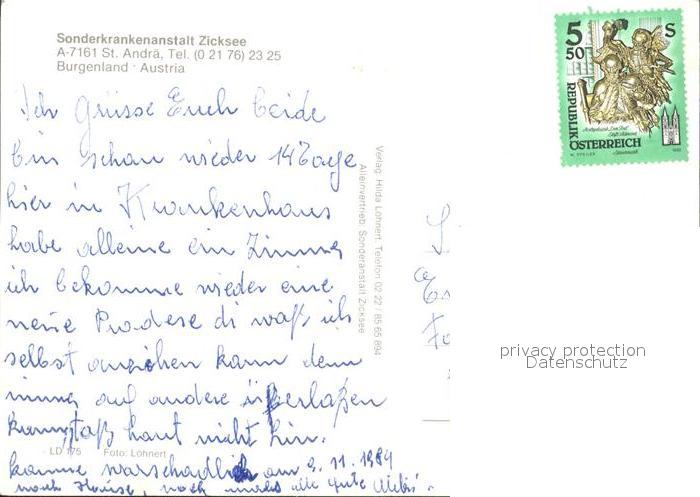 Sonderkrankenanstalt Zicksee
A-7161 St. Andrä, Tel. (0 21 76) 23 25
Burgenland · Austria
Ich Grüsse Euch beide
bin schon wieder 14 Tage
hier in Krankenhaus
habe alleine ein Zimmer
ich bekomme wieder eine
neue Prodese di waß ich
selbst anziehen kann denn
immer auf andere überlaßen
haut nicht hin.
komme warschadlich am 9.11.1984
nach Hause, noch alle gute
LD 175 Foto: Lohnert
Verlag: Hilda Lohnert, Telefon 02 22 / 85 65 894
Alleinvertrieb: Sonderanstalt Zicksee
5 50 S
REPUBLIK
ÖSTERREICH
privacy protection
Datenschutz